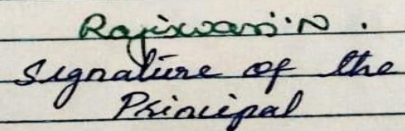 Rajiswari.N.
Signature of the
Principal